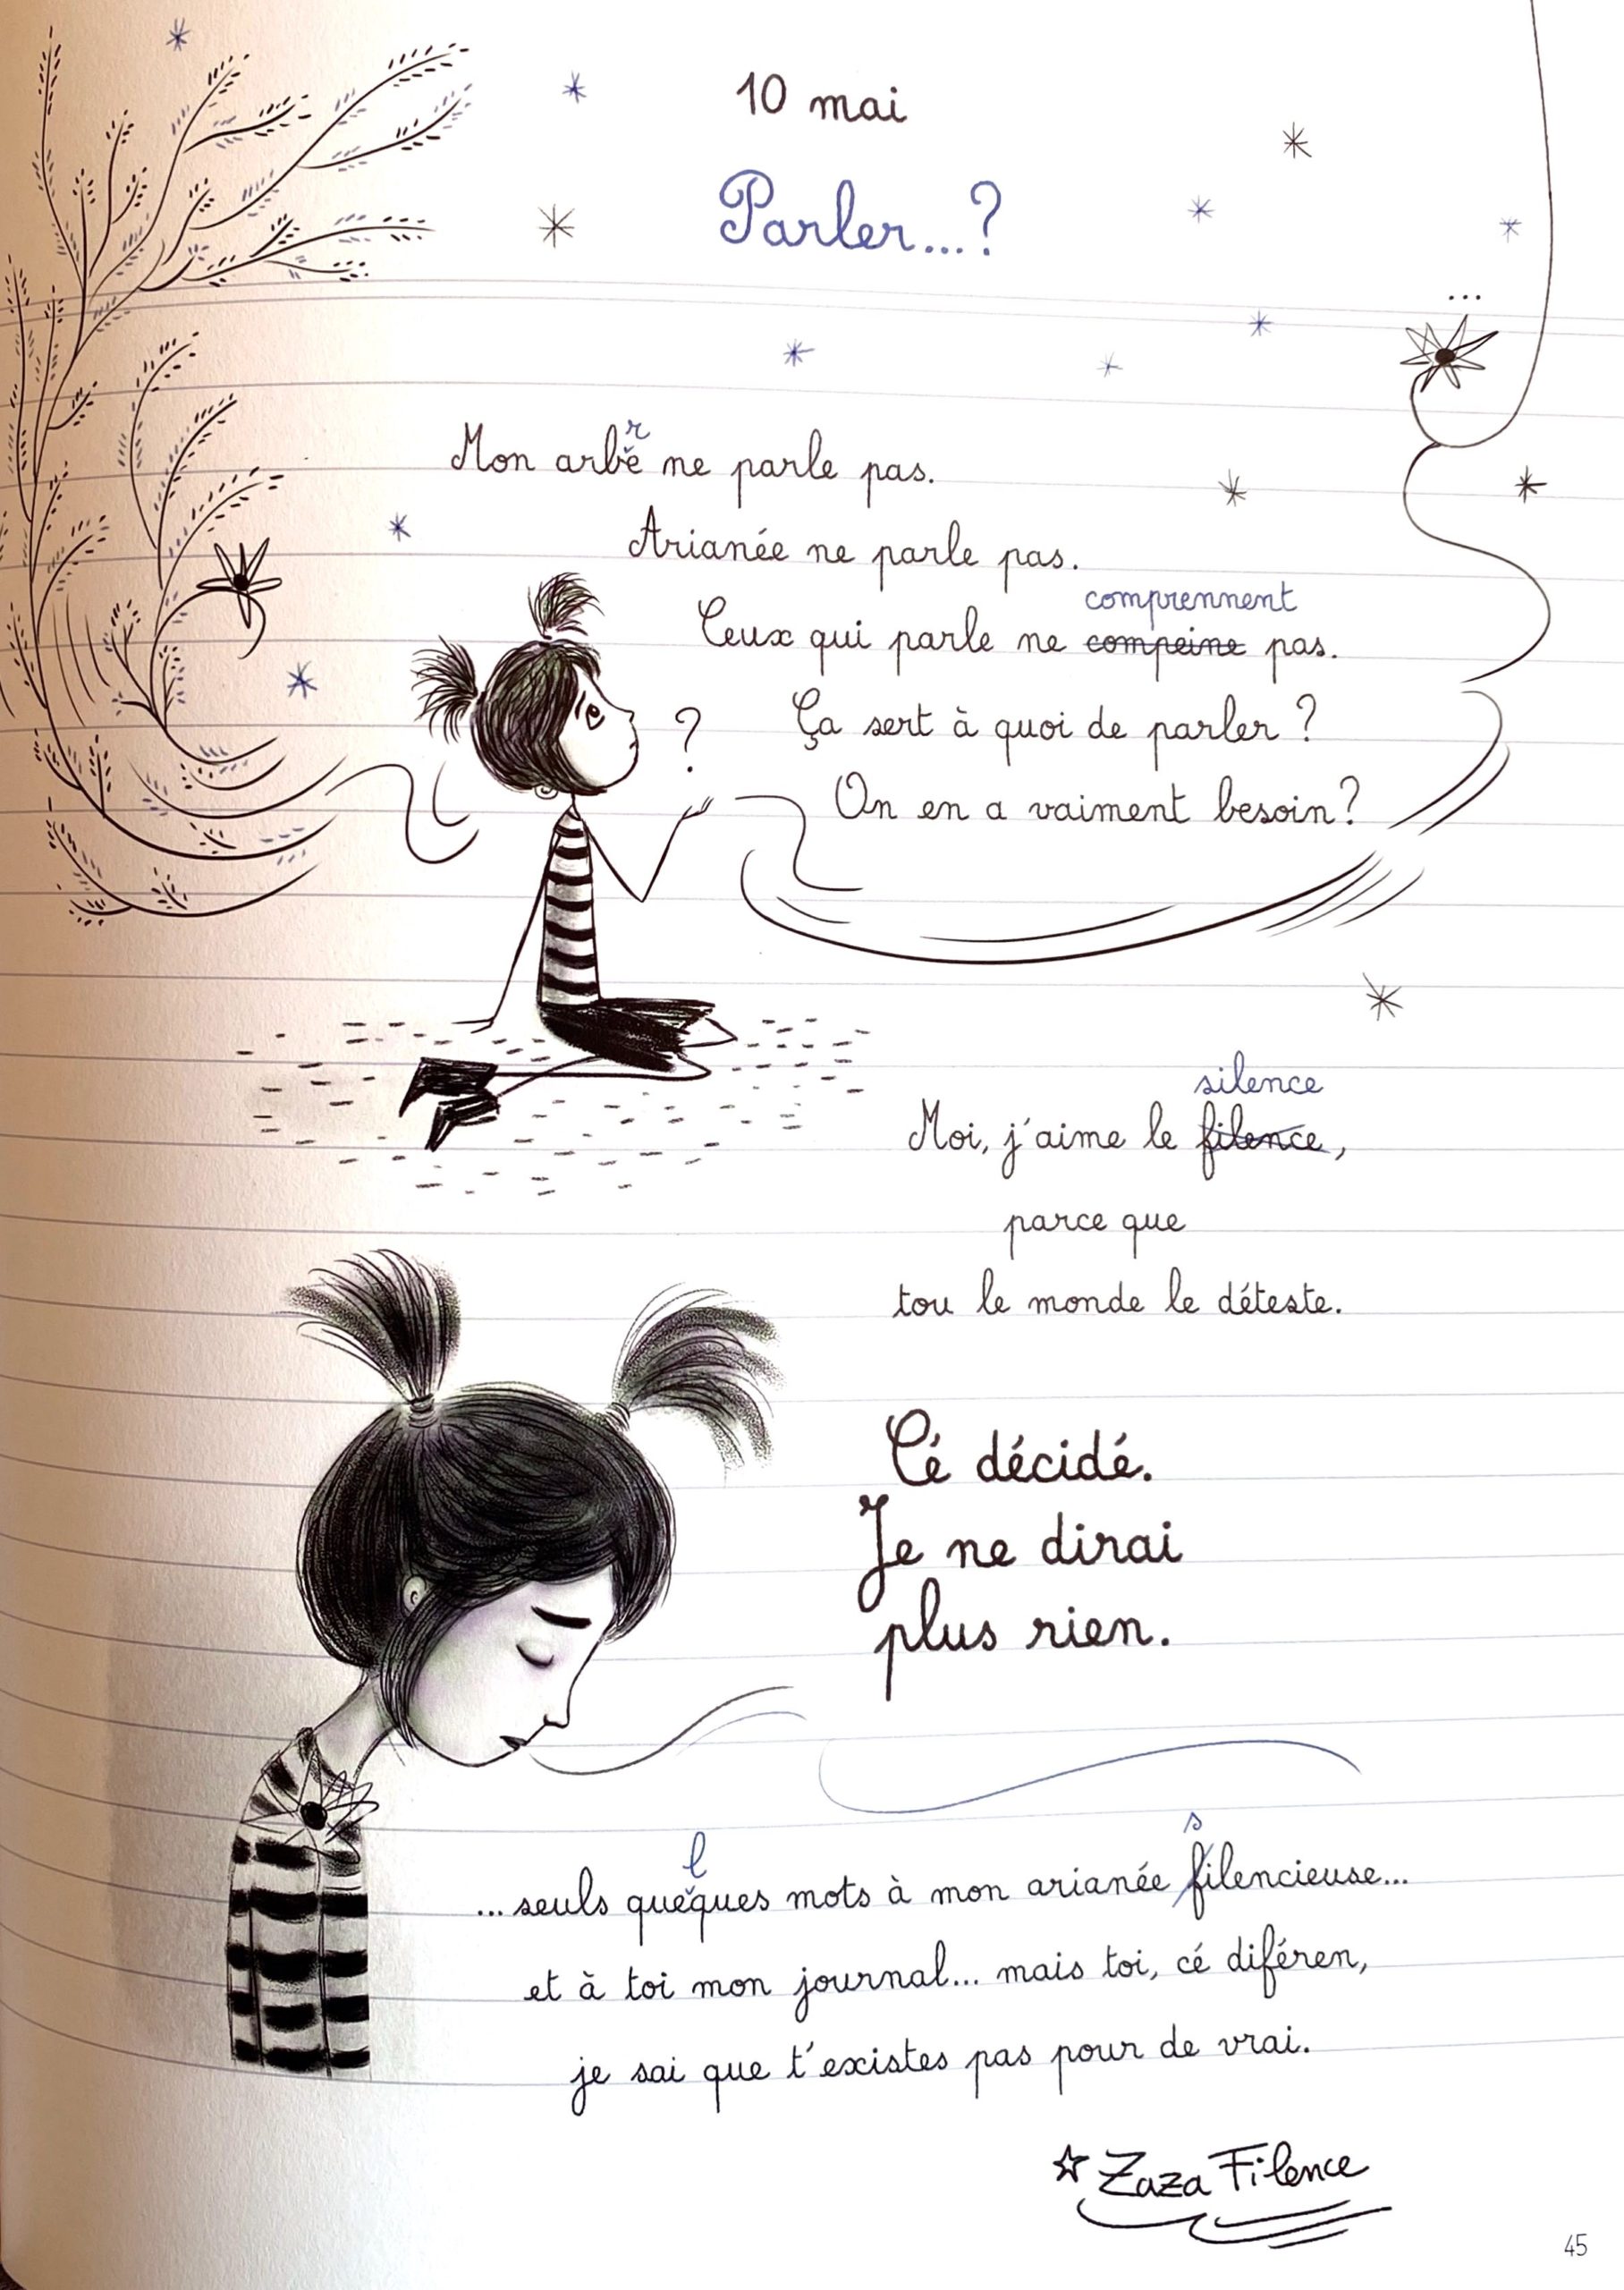 10 mai
Parler...?
...
r
Mon arbe ne parle pas.
Arianée ne parle pas.
comprennent
Ceux qui parle ne compeine pas.
?
Ça sert à quoi de parler ?
On en a vaiment besoin?
silence
Moi, j'aime le filence,
parce que
tou le monde le déteste.
Cé décidé.
Je ne dirai
plus rien.
l s
... seuls queques mots à mon arianée filencieuse...
et à toi mon journal... mais toi, cé diféren,
je sai que t'existes pas pour de vrai.
☆ Zaza Filence
45